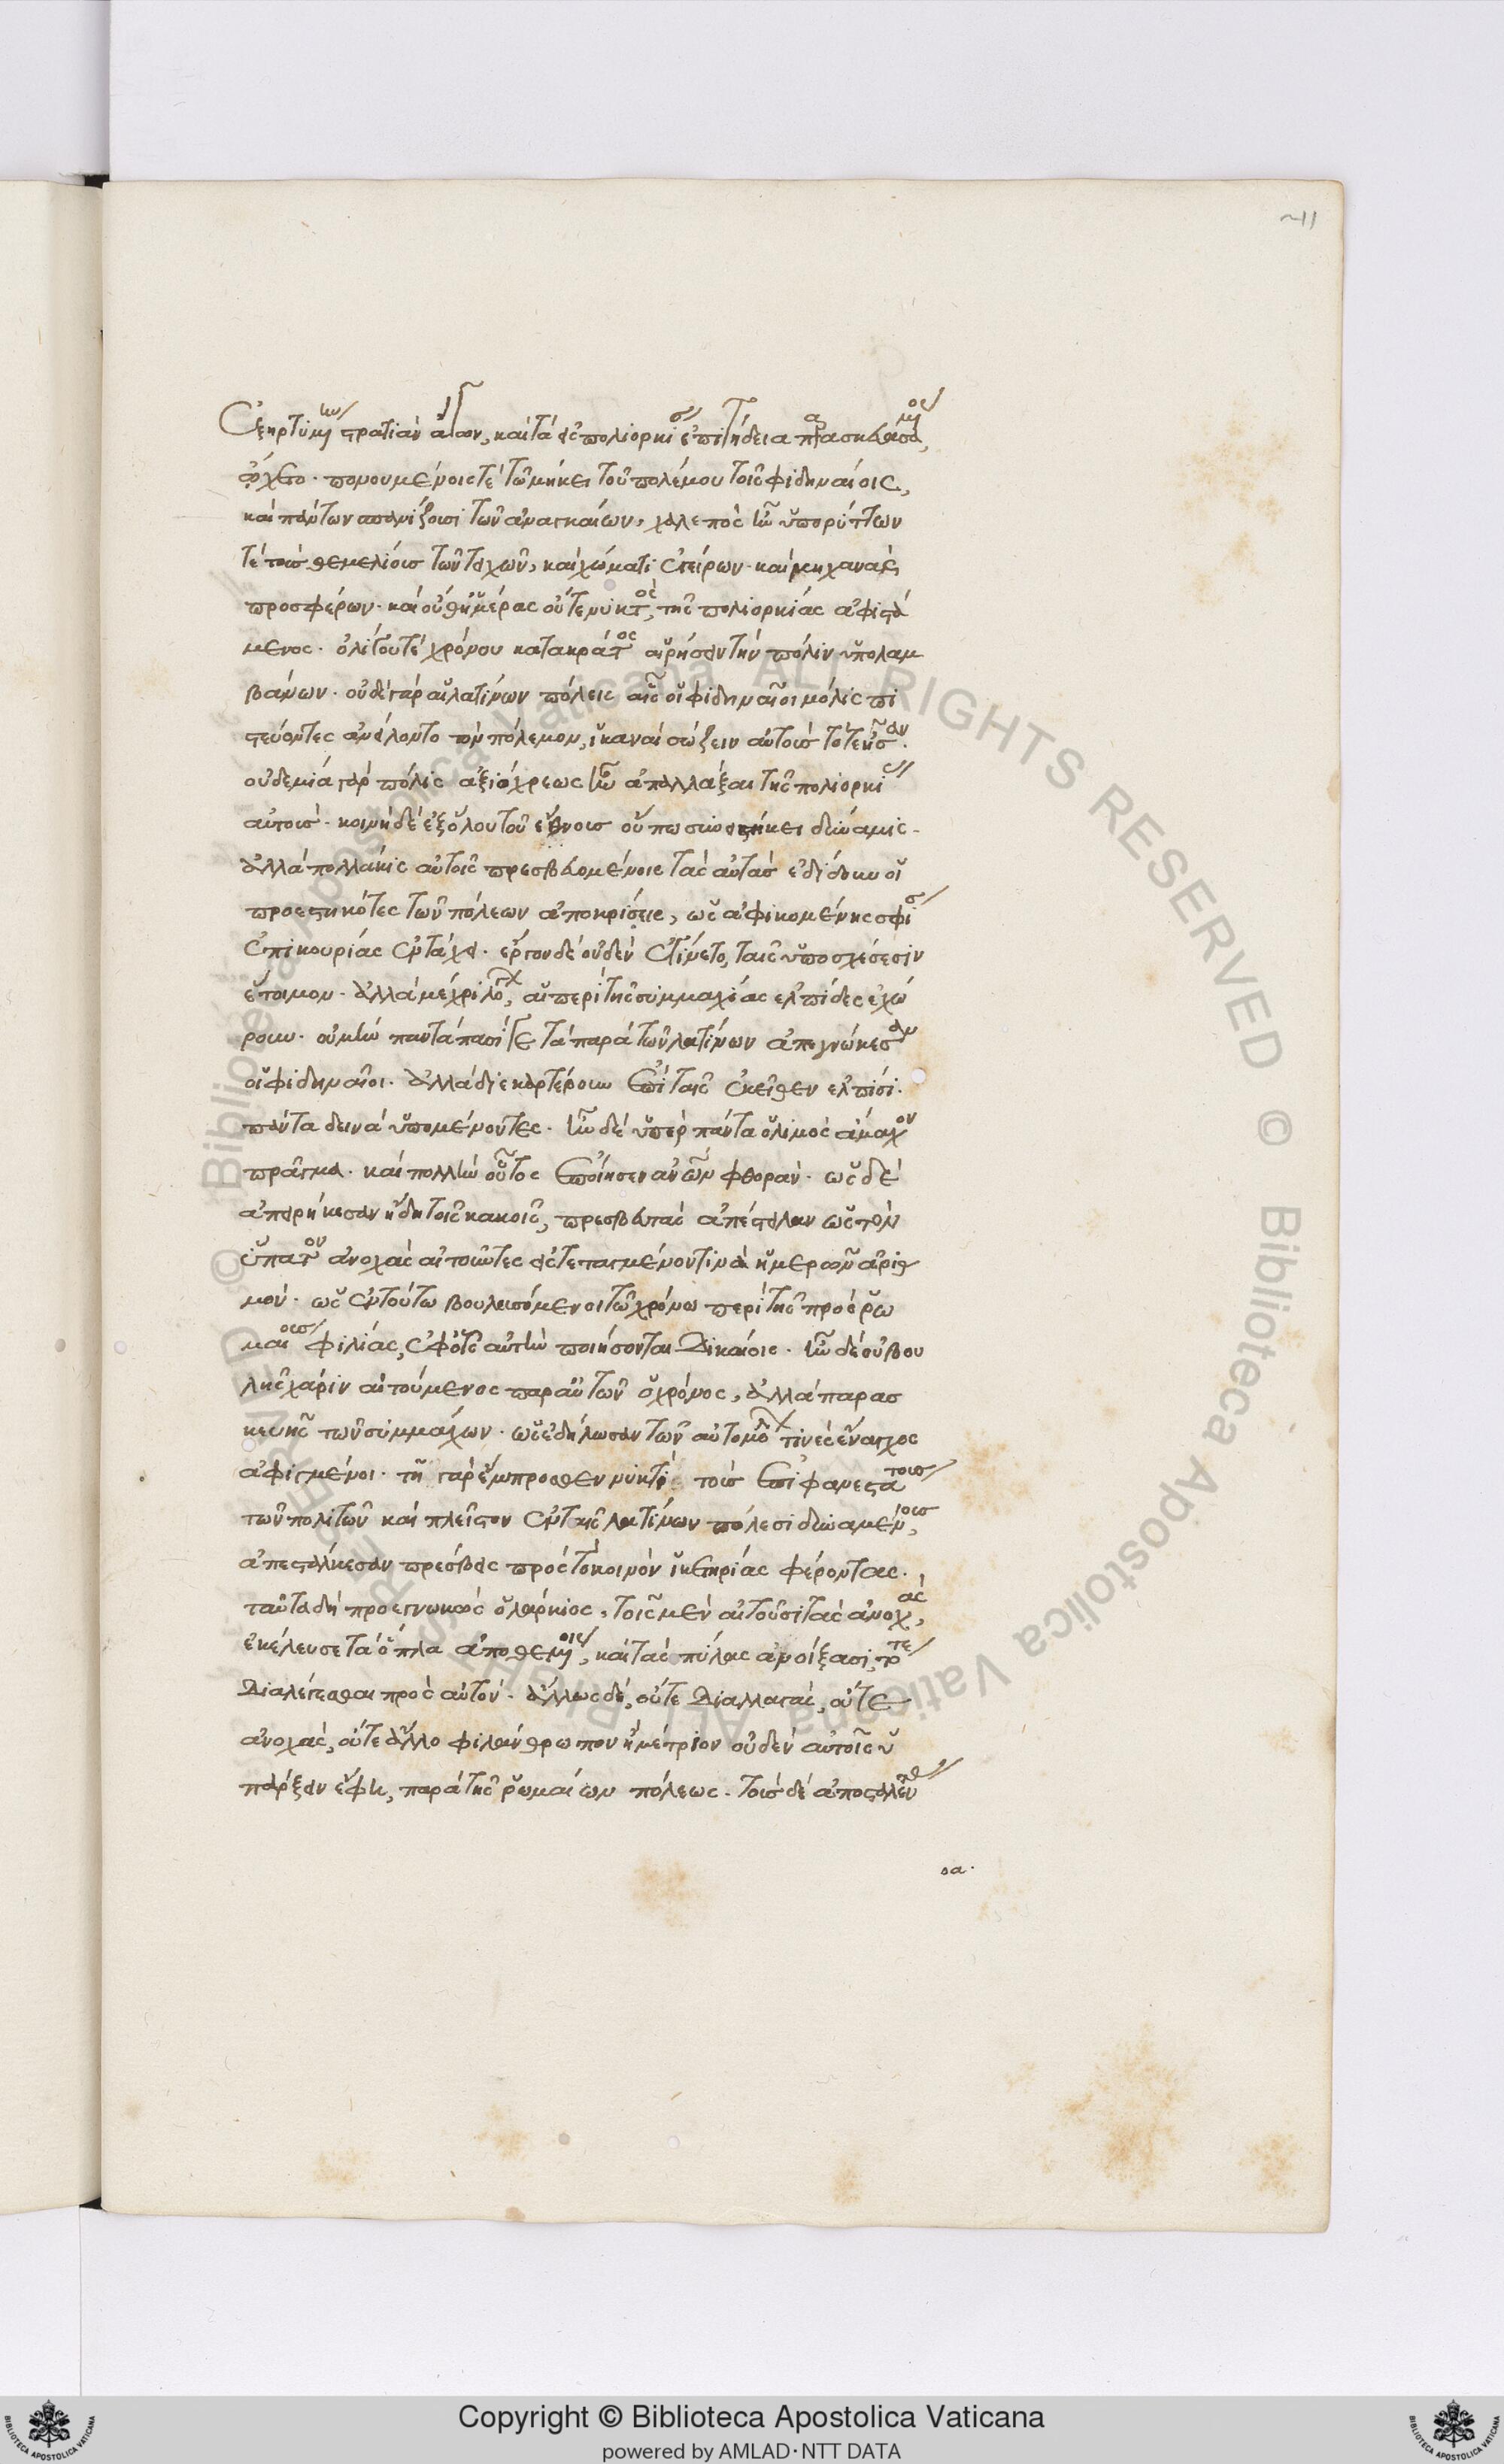 11
ἐξηρτυμένην στρατιὰν ἄγων, καὶ τὰ εἰς πολιορκίας ἐπιτήδεια παρασκευασάμενος,
ᾤχετο. πονουμένοις τὲ τῶ μήκει τοῦ πολέμου τοῖς φιδηναίοις,
καὶ πάντων σπανίζουσι τῶν ἀναγκαίων, χαλεπὸς ἦν ὑπορύττων
τὲ τοὺς θεμελίους τῶν τειχῶν, καὶ χώματι ἐγείρων. καὶ μηχανὰς
προσφέρων. καὶ οὔθ' ἡμέρας οὔτε νυκτὸς, τῆς πολιορκίας ἀφιστά
μενος. ὀλίγου τὲ χρόνου κατακράτος αἱρήσειν τὴν πόλιν ὑπολαμ
βάνων. οὐδὲ γὰρ αἱ λατίνων πόλεις αἷς οἱ φιδηναῖοι μόλις πι
στεύοντες ἀνείλοντο τὸν πόλεμον, ἱκαναὶ σώζειν αὐτοὺς τότε ἦσαν.
οὐδεμία γὰρ πόλις ἀξιόχρεως ἦν ἀπαλλάξαι τῆς πολιορκίας
αὐτούς. κοινὴ δὲ ἐξ ὅλου τοῦ ἔθνους οὔπω συνειστήκει δύναμις.
ἀλλὰ πολλάκις αὐτοῖς πρεσβευομένοις τὰς αὐτὰς ἐδίδουν οἱ
προεστηκότες τῶν πόλεων ἀποκρίσεις, ὡς ἀφικομένης σφίσιν
ἐπικουρίας ἐν τάχει. ἔργον δὲ οὐδὲν ἐγίνετο, ταῖς ὑποσχέσεσιν
ἕτοιμον. ἀλλὰ μέχρι λόγων, αἱ περὶ τῆς συμμαχίας ἐλπίδες ἐχώ
ρουν. οὐ μὴν παντάπασί γε τὰ παρὰ τῶν λατίνων ἀπεγνώκεσαν
οἱ φιδηναῖοι. ἀλλὰ διεκαρτέρουν ἐπὶ ταῖς ἐκεῖθεν ἐλπίσι.
πάντα δεινὰ ὑπομένοντες. ἦν δὲ ὑπὲρ πάντα ὁ λιμὸς ἄμαχον
πρᾶγμα. καὶ πολλὴν οὗτος ἐποίησεν ἀνῶν φθοράν. ὡς δὲ
ἀπειρήκεσαν ἤδη τοῖς κακοῖς, πρεσβευτὰς ἀπέστειλαν ὡς τὸν
ὕπατον ἀνοχὰς αἰτοῦντες εἰς τεταγμένον τινὰ ἡμερῶν ἀριθ
μόν. ὡς ἐν τούτω βουλευσόμενοι τῶ χρόνω περὶ τῆς πρὸς ῥω
μαίους φιλίας, ἐφ' οἷς τε αὐτὴν ποιήσονται δικαίοις. ἦν δὲ οὐ βου
λῆς χάριν αἰτούμενος παρ' αὐτῶν ὁ χρόνος, ἀλλὰ παρασ
κευῆς τῶν συμμάχων. ὡς ἐδήλωσαν τῶν αὐτομόλων τινὲς ἔναγχος
ἀφιγμένοι. τῆ γὰρ ἔμπροσθεν νυκτὶ τοὺς ἐπιφανεστάτους
τῶν πολιτῶν καὶ πλεῖστον ἐν ταῖς λατίνων πόλεσι δυναμένους,
ἀπεστάλκεσαν πρέσβεις πρὸς τὸ κοινὸν ἱκετηρίας φέροντας.
ταῦτα δὴ προεγνωκὼς ὁ λάρκιος, τοῖς μὲν αἰτοῦσι τὰς ἀνοχὰς,
ἐκέλευσε τὰ ὅπλα ἀποθεμένοις, καὶ τὰς πύλας ἀνοίξασι, τότε
διαλέγεσθαι πρὸς αὐτόν. ἄλλως δὲ, οὔτε διαλλαγὰς, οὔτε
ἀνοχὰς, οὔτε ἄλλο φιλάνθρωπον ἢ μέτριον οὐδὲν αὐτοῖς ὑ
πάρξειν ἔφη, παρὰ τῆς ῥωμαίων πόλεως. τοὺς δὲ ἀποσταλέντας
οα.
Copyright © Biblioteca Apostolica Vaticana
powered by AMLAD·NTT DATA